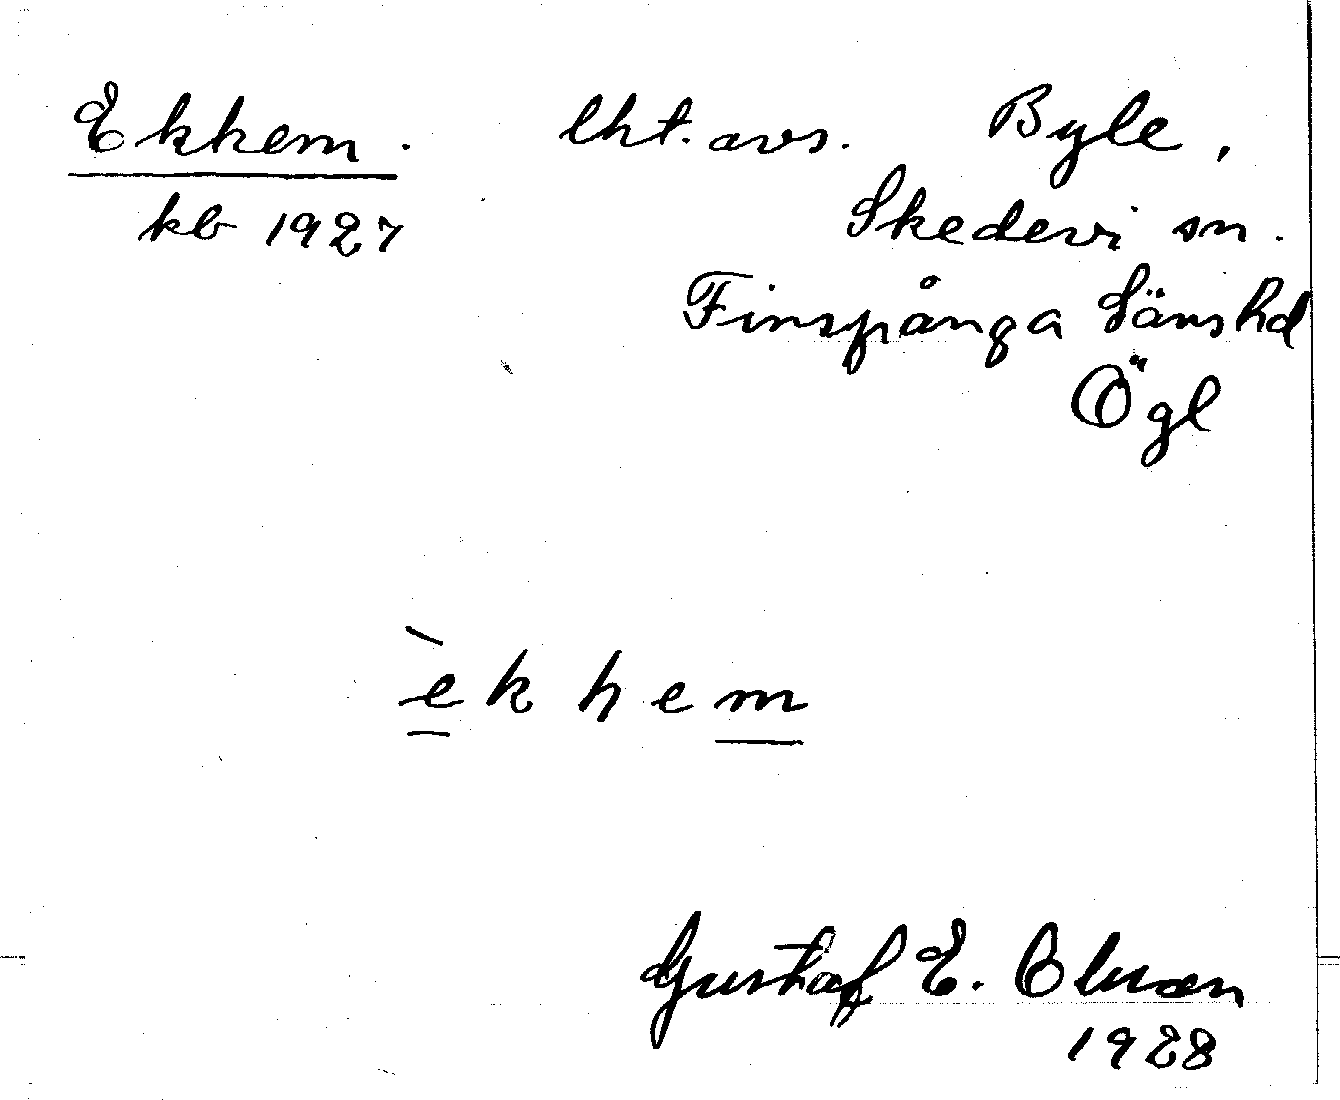 Ekhem. lht. avs. Byle,
kb 1927 Skedevi sn.
Finspånga läns hd
Ögl
èkhem
Gustaf E. Olsson
1928